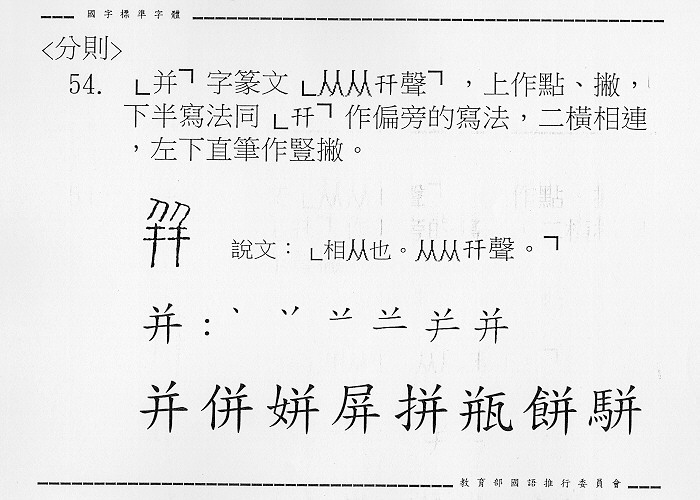 國字標準字體
<分則>
54. 「并」字篆文「从从幵聲」，上作點、撇，
下半寫法同「幵」作偏旁的寫法，二橫相連
，左下直筆作豎撇。
說文：「相从也。从从幵聲。」
并：丶 丷
并併姘屏拼瓶餅駢
教育部國語推行委員會